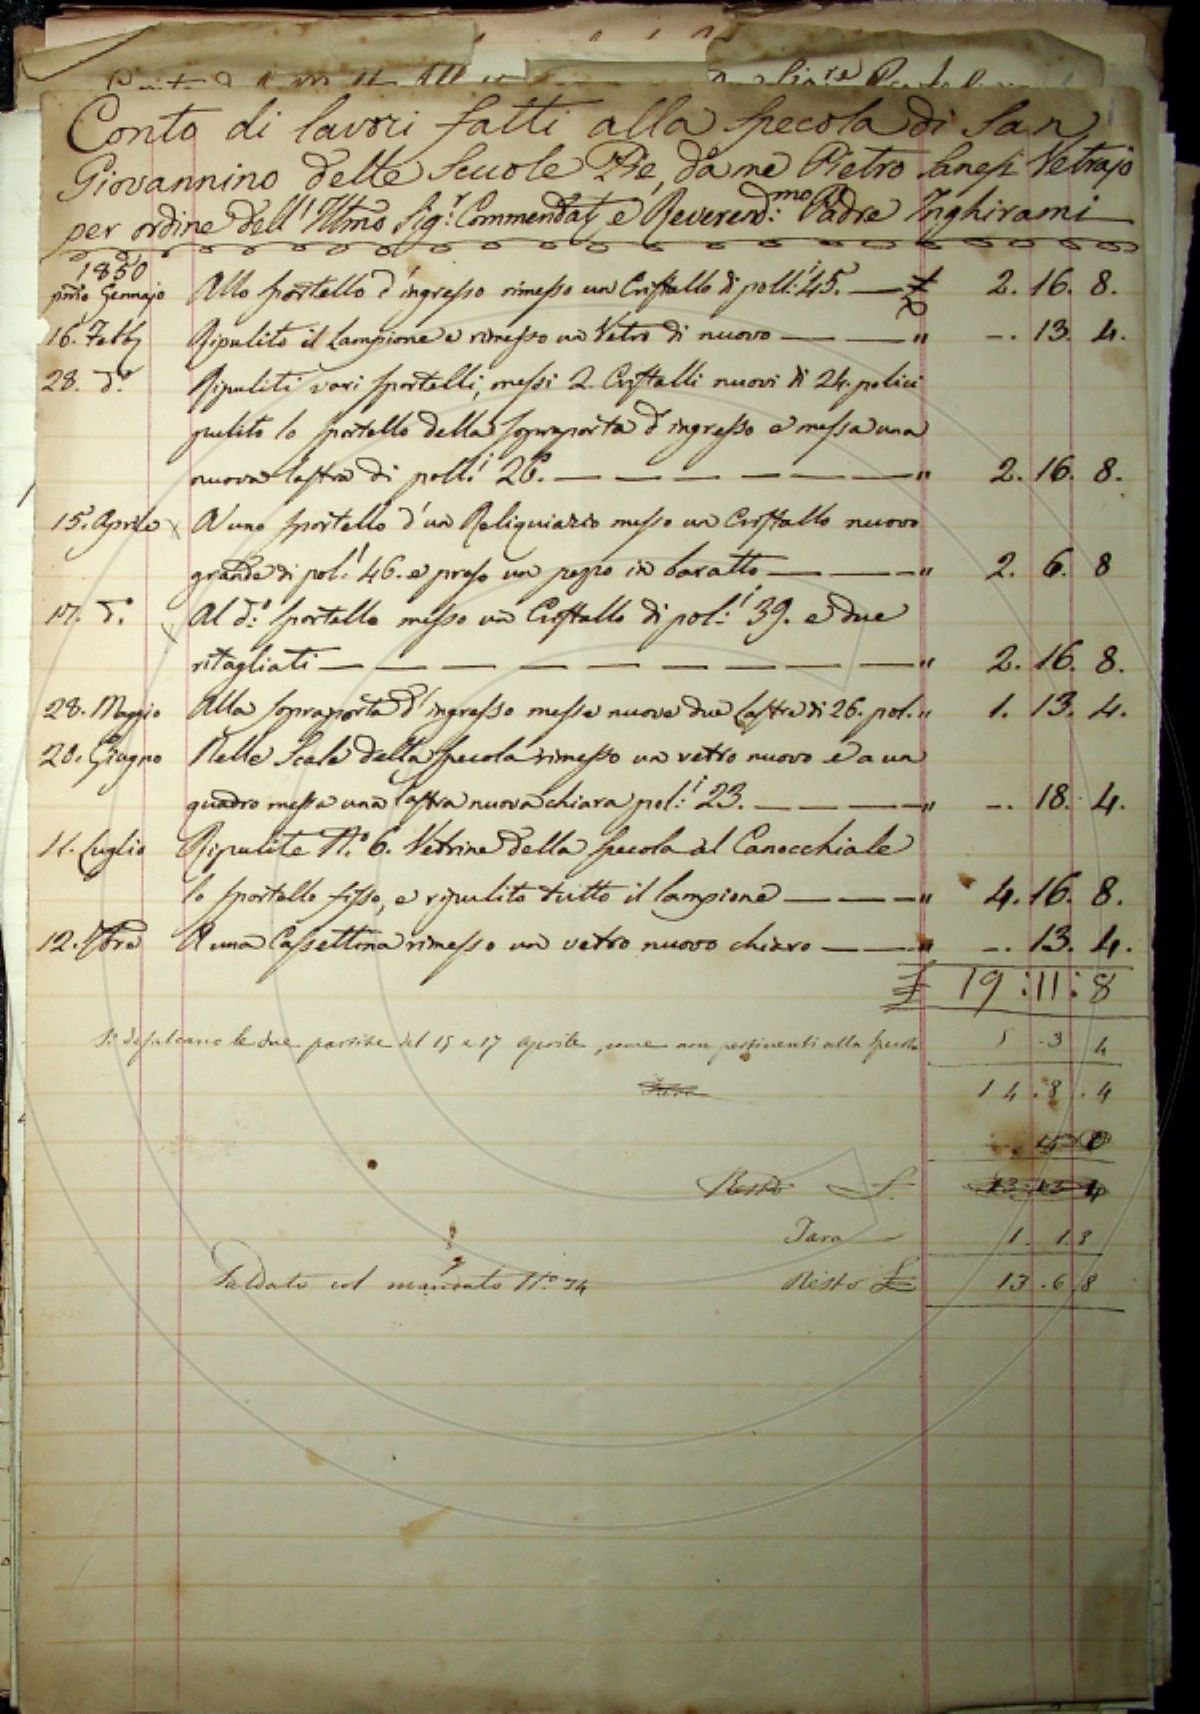 Conto di lavori fatti alla Specola di San
Giovannino delle Scuole Pie, da me Pietro Sanesi Vetrajo
per ordine dell' Illmo Sig.r Commendat. e Reverend.mo Padre Inghirami
1850
primo Gennajo Allo sportello d'ingresso rimesso un Cristallo di poll.i 45. — £ 2. 16. 8.
16. Febb. Ripulito il Lampione e rimesso un Vetro di nuovo — — " -. 13. 4.
28. d.o Ripuliti vari sportelli, messi 2. Cristalli nuovi di 24. polici
pulito lo sportello della sopraporta d'ingresso e messa una
nuova lastra di poll.i 26. — — — — — — " 2. 16. 8.
15. Aprile A uno sportello d'un Reliquiario messo un Cristallo nuovo
grande di pol.i 46. e preso un pezzo in baratto — — — " 2. 6. 8
17. d.o Al d.o sportello messo un Cristallo di pol.i 39. e due
ritagliati — — — — — — — — — " 2. 16. 8.
28. Maggio Alla sopraporta d'ingresso messe nuove due lastre di 26. pol. " 1. 13. 4.
20. Giugno Nelle Scale della Specola rimesso un vetro nuovo e a un
quadro messa una lastra nuova chiara pol.i 23. — — — " -. 18. 4.
11. Luglio Ripulite N.o 6. Vetrine della Specola al Canocchiale
lo sportello fisso, e ripulito tutto il lampione — — — " 4. 16. 8.
12. 9bre A una Cassettina rimesso un vetro nuovo chiaro — — " -. 13. 4.
£ 19 : 11 : 8
Si defalcano le due partite del 15 e 17 Aprile, come non pertinenti alla Specola 5 . 3 4
14 . 8 . 4
Resto £ 13 13 4
Tara 1. 1. 8
Saldato col mandato N.o 34 Resto £ 13 . 6 . 8